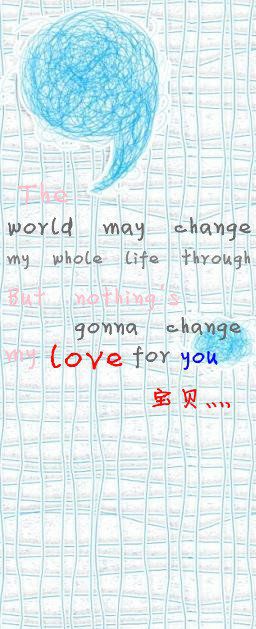 The
world may change
my whole life through
But nothing's
gonna change
my love for you
宝贝、、、、